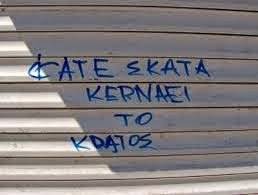 ΦΑΤΕ ΣΚΑΤΑ
ΚΕΡΝΑΕΙ
ΤΟ
ΚΡΑΤΟΣ